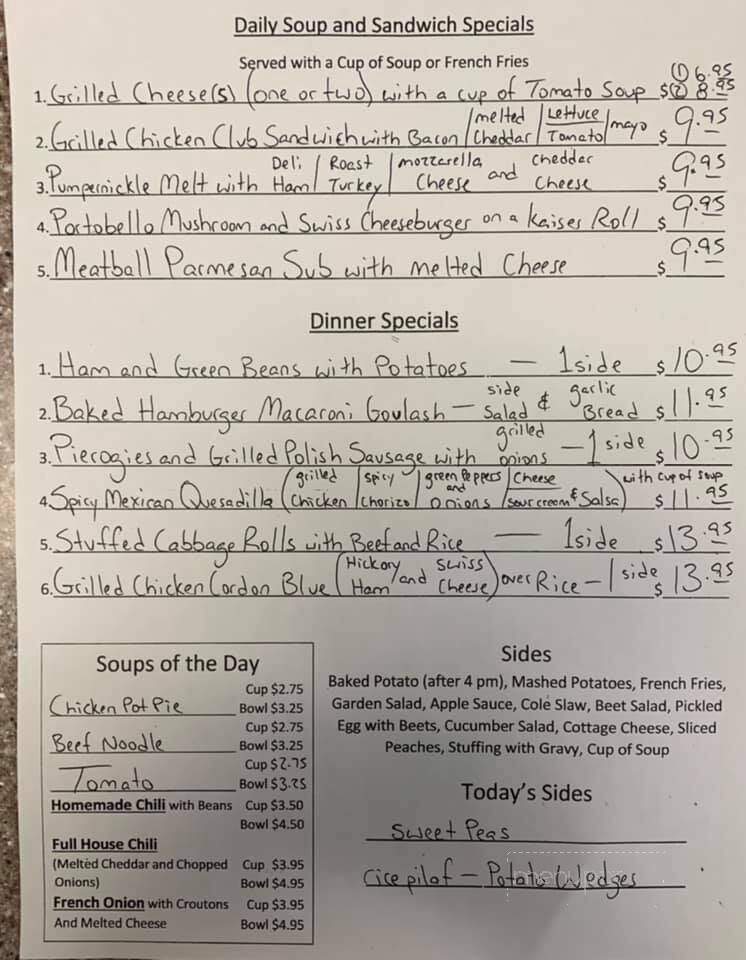 Daily Soup and Sandwich Specials
Served with a Cup of Soup or French Fries
1. Grilled Cheese(s) (one or two) with a cup of Tomato Soup $ (1) 6.95 (2) 8.95
2. Grilled Chicken Club Sandwich with Bacon / melted Cheddar / Lettuce Tomato / mayo $ 9.95
3. Pumpernickle Melt with Deli Ham / Roast Turkey / mozzarella Cheese and cheddar Cheese $ 9.95
4. Portobello Mushroom and Swiss Cheeseburger on a Kaiser Roll $ 9.95
5. Meatball Parmesan Sub with melted Cheese $ 9.95
Dinner Specials
1. Ham and Green Beans with Potatoes — 1 side $ 10.95
2. Baked Hamburger Macaroni Goulash — side Salad & garlic Bread $ 11.95
3. Pierogies and Grilled Polish Sausage with grilled onions — 1 side $ 10.95
4. Spicy Mexican Quesadilla (grilled Chicken / spicy Chorizo / green Peppers and Onions / Cheese sour cream & Salsa) with cup of soup $ 11.95
5. Stuffed Cabbage Rolls with Beef and Rice — 1 side $ 13.95
6. Grilled Chicken Cordon Blue (Hickory Ham and Swiss Cheese) over Rice — 1 side $ 13.95
Soups of the Day
Cup $2.75
Chicken Pot Pie Bowl $3.25
Cup $2.75
Beef Noodle Bowl $3.25
Cup $2.75
Tomato Bowl $3.25
Homemade Chili with Beans Cup $3.50
Bowl $4.50
Full House Chili
(Melted Cheddar and Chopped Cup $3.95
Onions) Bowl $4.95
French Onion with Croutons Cup $3.95
And Melted Cheese Bowl $4.95
Sides
Baked Potato (after 4 pm), Mashed Potatoes, French Fries,
Garden Salad, Apple Sauce, Cole Slaw, Beet Salad, Pickled
Egg with Beets, Cucumber Salad, Cottage Cheese, Sliced
Peaches, Stuffing with Gravy, Cup of Soup
Today's Sides
Sweet Peas
rice pilaf — Potato Wedges